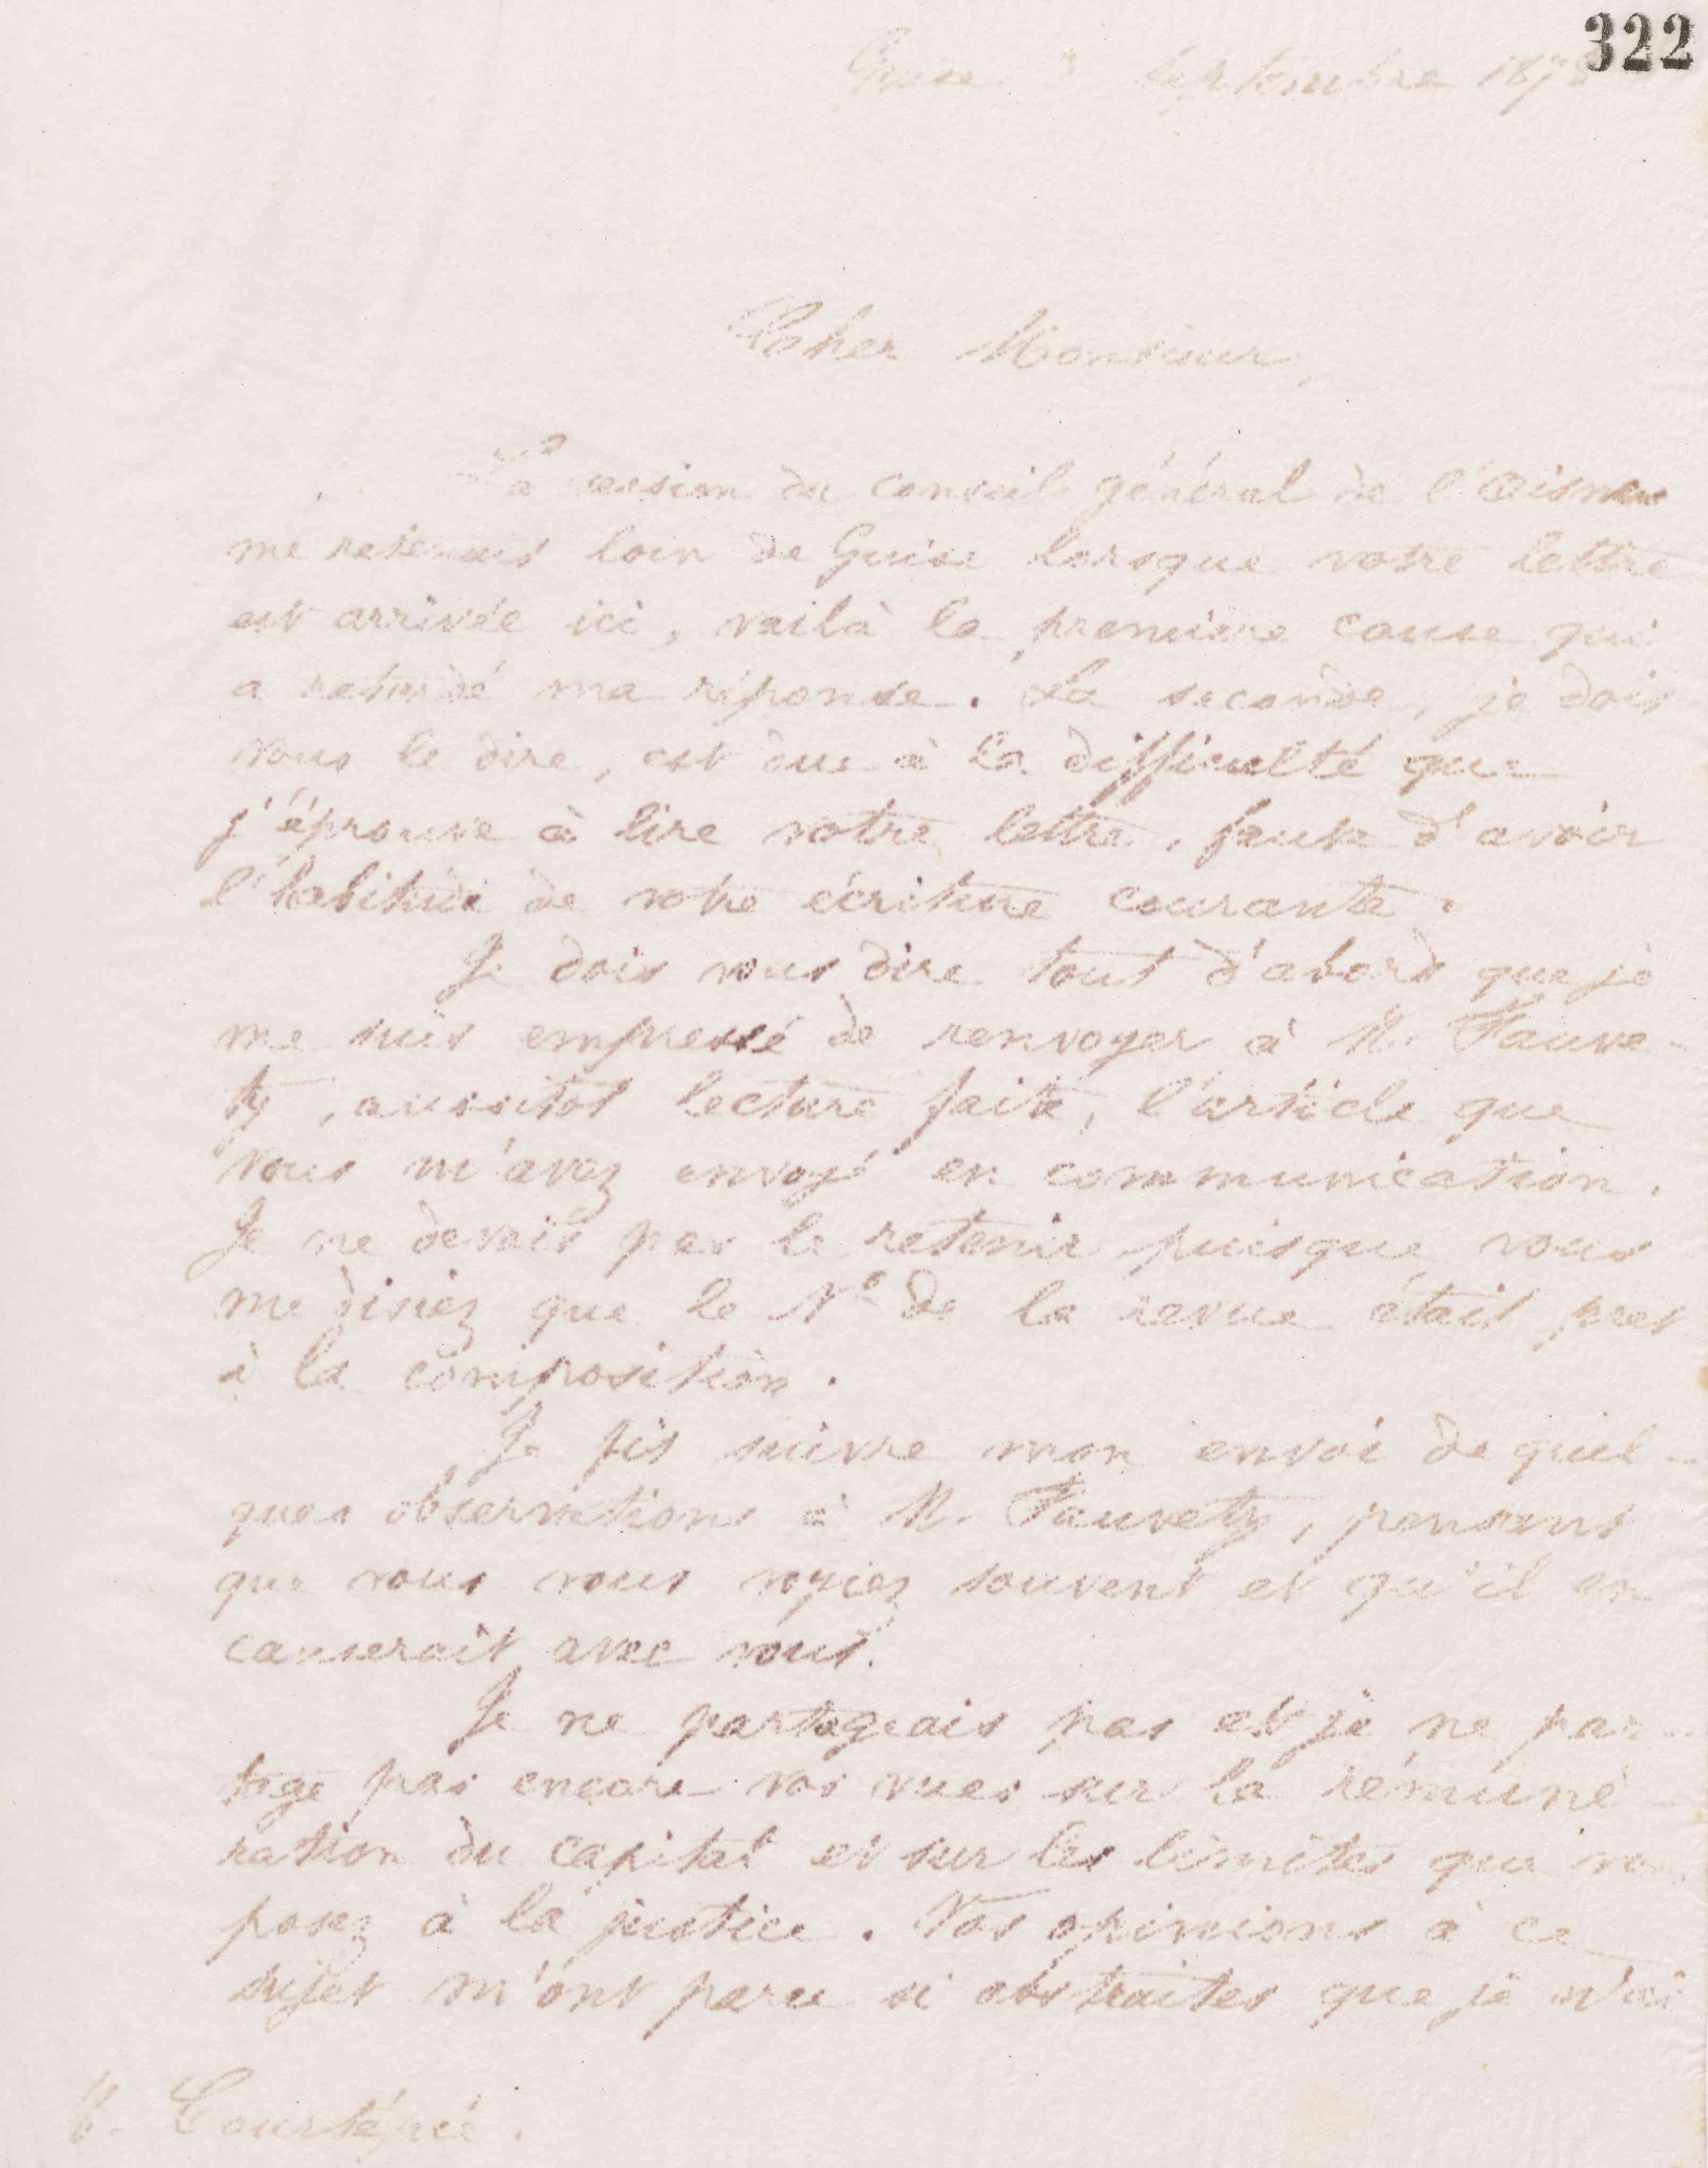 322
Guise 3 septembre 187
Cher Monsieur,
La session du conseil général de l'Aisne
me retenait loin de Guise lorsque votre lettre
est arrivée ici, voilà la première cause qui
a retardé ma réponse. La seconde, je dois
vous le dire, est due à la difficulté que
j'éprouve à lire votre lettre, faute d'avoir
l'habitude de votre écriture courante.
Je dois vous dire tout d'abord que je
me suis empressé de renvoyer à M. Fauve-
ty, aussitôt lecture faite, l'article que
vous m'avez envoyé en communication.
Je ne devais pas le retenir puisque vous
me disiez que le No de la revue était pret
à la composition.
Je fis suivre mon envoi de quel-
ques observations à M. Fauvety, pensant
que vous vous voyiez souvent et qu'il en
causerait avec vous.
Je ne partageais pas et je ne par-
tage pas encore vos vues sur la rémuné-
ration du capital et sur les limites que vous
posez à la justice. Vos opinions à ce
sujet m'ont paru si abstraites que je n'ai
M. Courtépée.